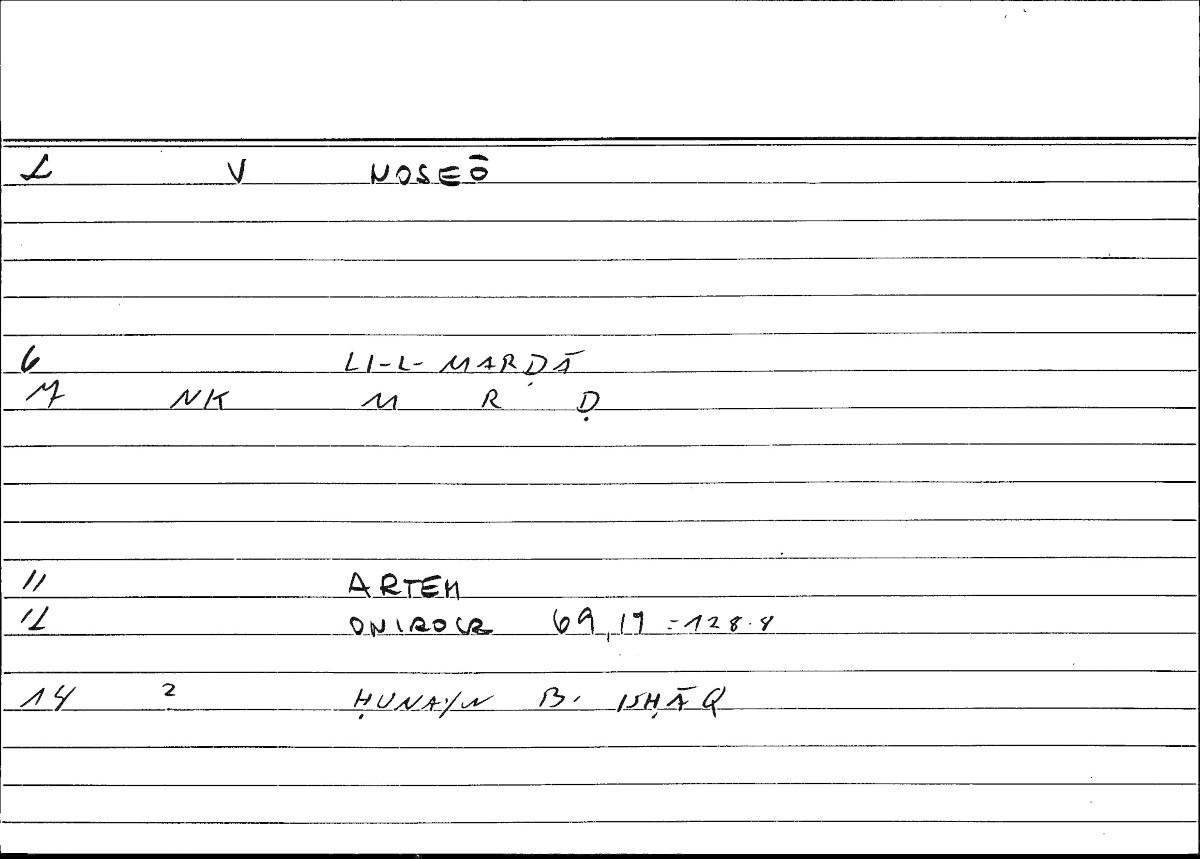 1 V NOSEŌ
6 LI-L-MARḌĀ
7 NK M R Ḍ
11 ARTEM
12 ONIROCR 69,19 = 128.8
14 2 ḤUNAYN B. ISḤĀQ